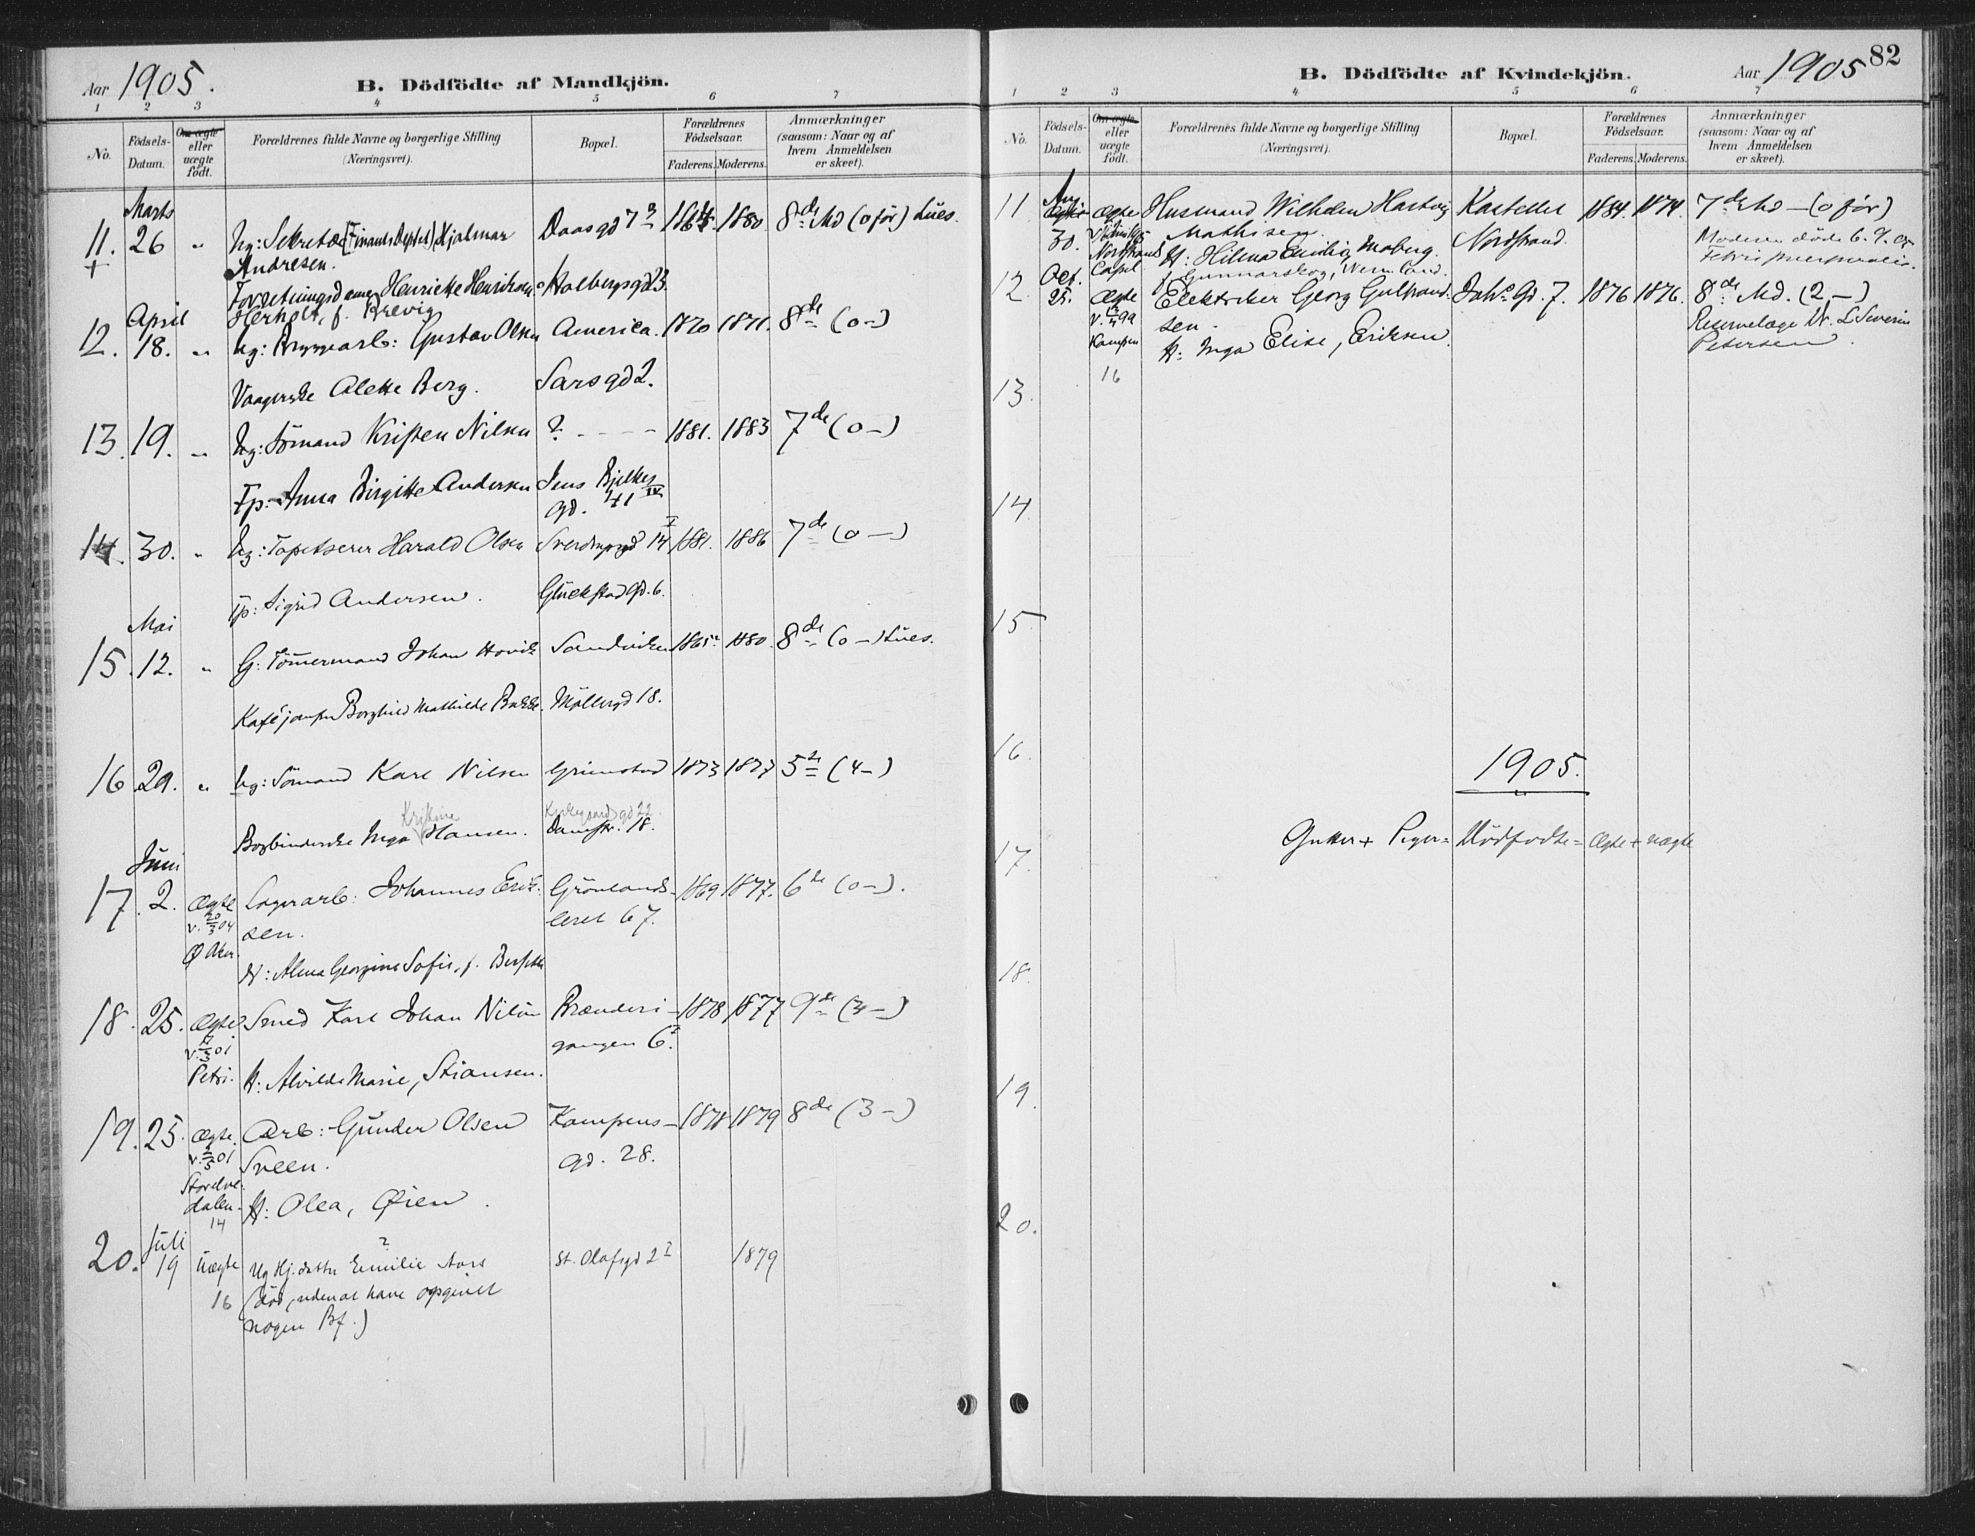 Aar 1905. B. Dödfödte af Mandkjön.
1 2 3 4 5 6 7
No. Födsels-Datum. Om ægte eller uægte født. Forældrenes fulde Navne og borgerlige Stilling (Næringsvei). Bopæl. Forældrenes Födselsaar. Faderens. Moderens. Anmærkninger (saasom: Naar og af hvem Anmeldelsen er skeet).
Marts
11. 26 " Ug: Sekretær (Finants Deptet) Hjalmar Daasgd 7 1880 8de Md (0 før) Lues.
+ Andresen.
Henriette Henriksen Holbergsgd 23
Herholt, f. Brevig
April
12. 18. " Ug: Bryggearb: Gustav Olsen America. 1870 1871. 8de (0 –)
Vaagerske Alette Berg. Sarsgd 2.
13. 19. " Ug: Sømand Kristen Nilsen ? - - - - 1881. 1883 7de (0 –)
Tp: Anna Birgitte Andersen Jens Bjelkes
gd. 41 IV
14. 30. " Ug: Tapetserer Harald Olsen Sverdrupgd 14 1881. 1886 7de (0 –)
Tp: Sigrid Andersen. Glückstad gd. 6.
Mai
15. 12. " G: Tømermand Johan Hovik Sandviken 1865 1880. 8de (0 –) Lues.
Kaféjomfru Borghild Mathilde Bakke. Møllergd 18.
16. 29. " Ug: Sømand Karl Nilsen Grimstad 1873 1877 5te (4 –)
Kristine Kirkegaardsgd 22.
Bogbinderske Inga Hansen. Damstr. 18.
Juni
17. 2. Ægte Lagerarb: Johannes Erik- Grönlands- 1869 1877. 6te (0 –).
v. 20/3 04 sen. leret 67.
Ø Aker. H: Alma Georgine Sofie, f.
18. 25. Ægte Smed Karl Johan Nilsen Brænderi- 1878 1877 9de (3 –)
v. 01 gangen 6
Petri. H: Alvilde Marie, Stiansen.
19. 25. Ægte. Arb: Gunder Olsen Kampens- 1878 1879 8de (3 –)
v. 01 Sveen. gd. 28.
dalen. H: Olea, Øien.
14
Juli ?
20. 19 Uægte Ug Hj. datter Emilie Aars St. Olafsgd 2 1879
16 (død, uden at have opgivet
nogen Bf.)
B. Dödfödte af Kvindekjön. Aar 1905 82
1 2 3 4 5 6 7
No. Födsels-Datum. Om ægte eller uægte født. Forældrenes fulde Navne og borgerlige Stilling (Næringsvei). Bopæl. Forældrenes Födselsaar. Faderens. Moderens. Anmærkninger (saasom: Naar og af hvem Anmeldelsen er skeet).
Aug
11. Ægte Husmand Wilhelm Hartvig Kastellet 1884. 1874. 7de Md – (0 før)
30. Mathisen. Nordstrand. Moderen døde 6. 9. 05
Nordstrands H: Hilma Emilie, Moberg. Febris puerperalis.
Capel f Gunnarskog, Wermland.
12. Oct. 25. Ægte Elektriker Georg Gulbrand- Joh's Gd. 7. 1876 1876. 8de Md. (2 –)
v. 99 sen. Reservelæge Dr. L Severin
Kampen H: Inga Elise, Eriksen. Petersen.
16
13.
14.
15.
16.
1905.
Gutter + Piger = Dødfødte = Ægte + uægte
17.
18.
19.
20.